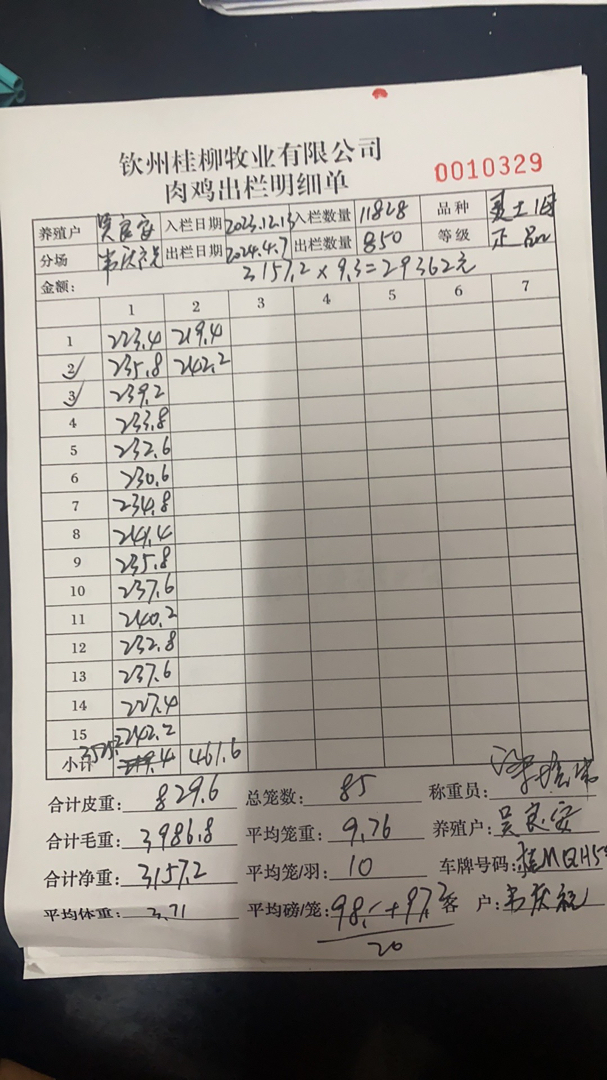 钦州桂柳牧业有限公司
肉鸡出栏明细单
0010329
养殖户 吴良安 入栏日期 2023.12.13 入栏数量 11828 品种
分场 韦庆 出栏日期 2024.4.7 出栏数量 850 等级 正品
金额: 3157.2×9.3=29362元
1 2 3 4 5 6 7
1 223.4 219.4
2 235.8 242.2
3 239.2
4 233.8
5 232.6
6 230.6
7 234.8
8 241.4
9 235.8
10 237.6
11 240.2
12 232.8
13 237.6
14 227.4
15 242.2
小计 3525.2 461.6
合计皮重: 829.6 总笼数: 85 称重员:
合计毛重: 3986.8 平均笼重: 9.76 养殖户: 吴良安
合计净重: 3157.2 平均笼/羽: 10 车牌号码: 桂MQH5
平均体重: 3.71 平均磅/笼: 98.1+97.2 客 户: 韦庆
20